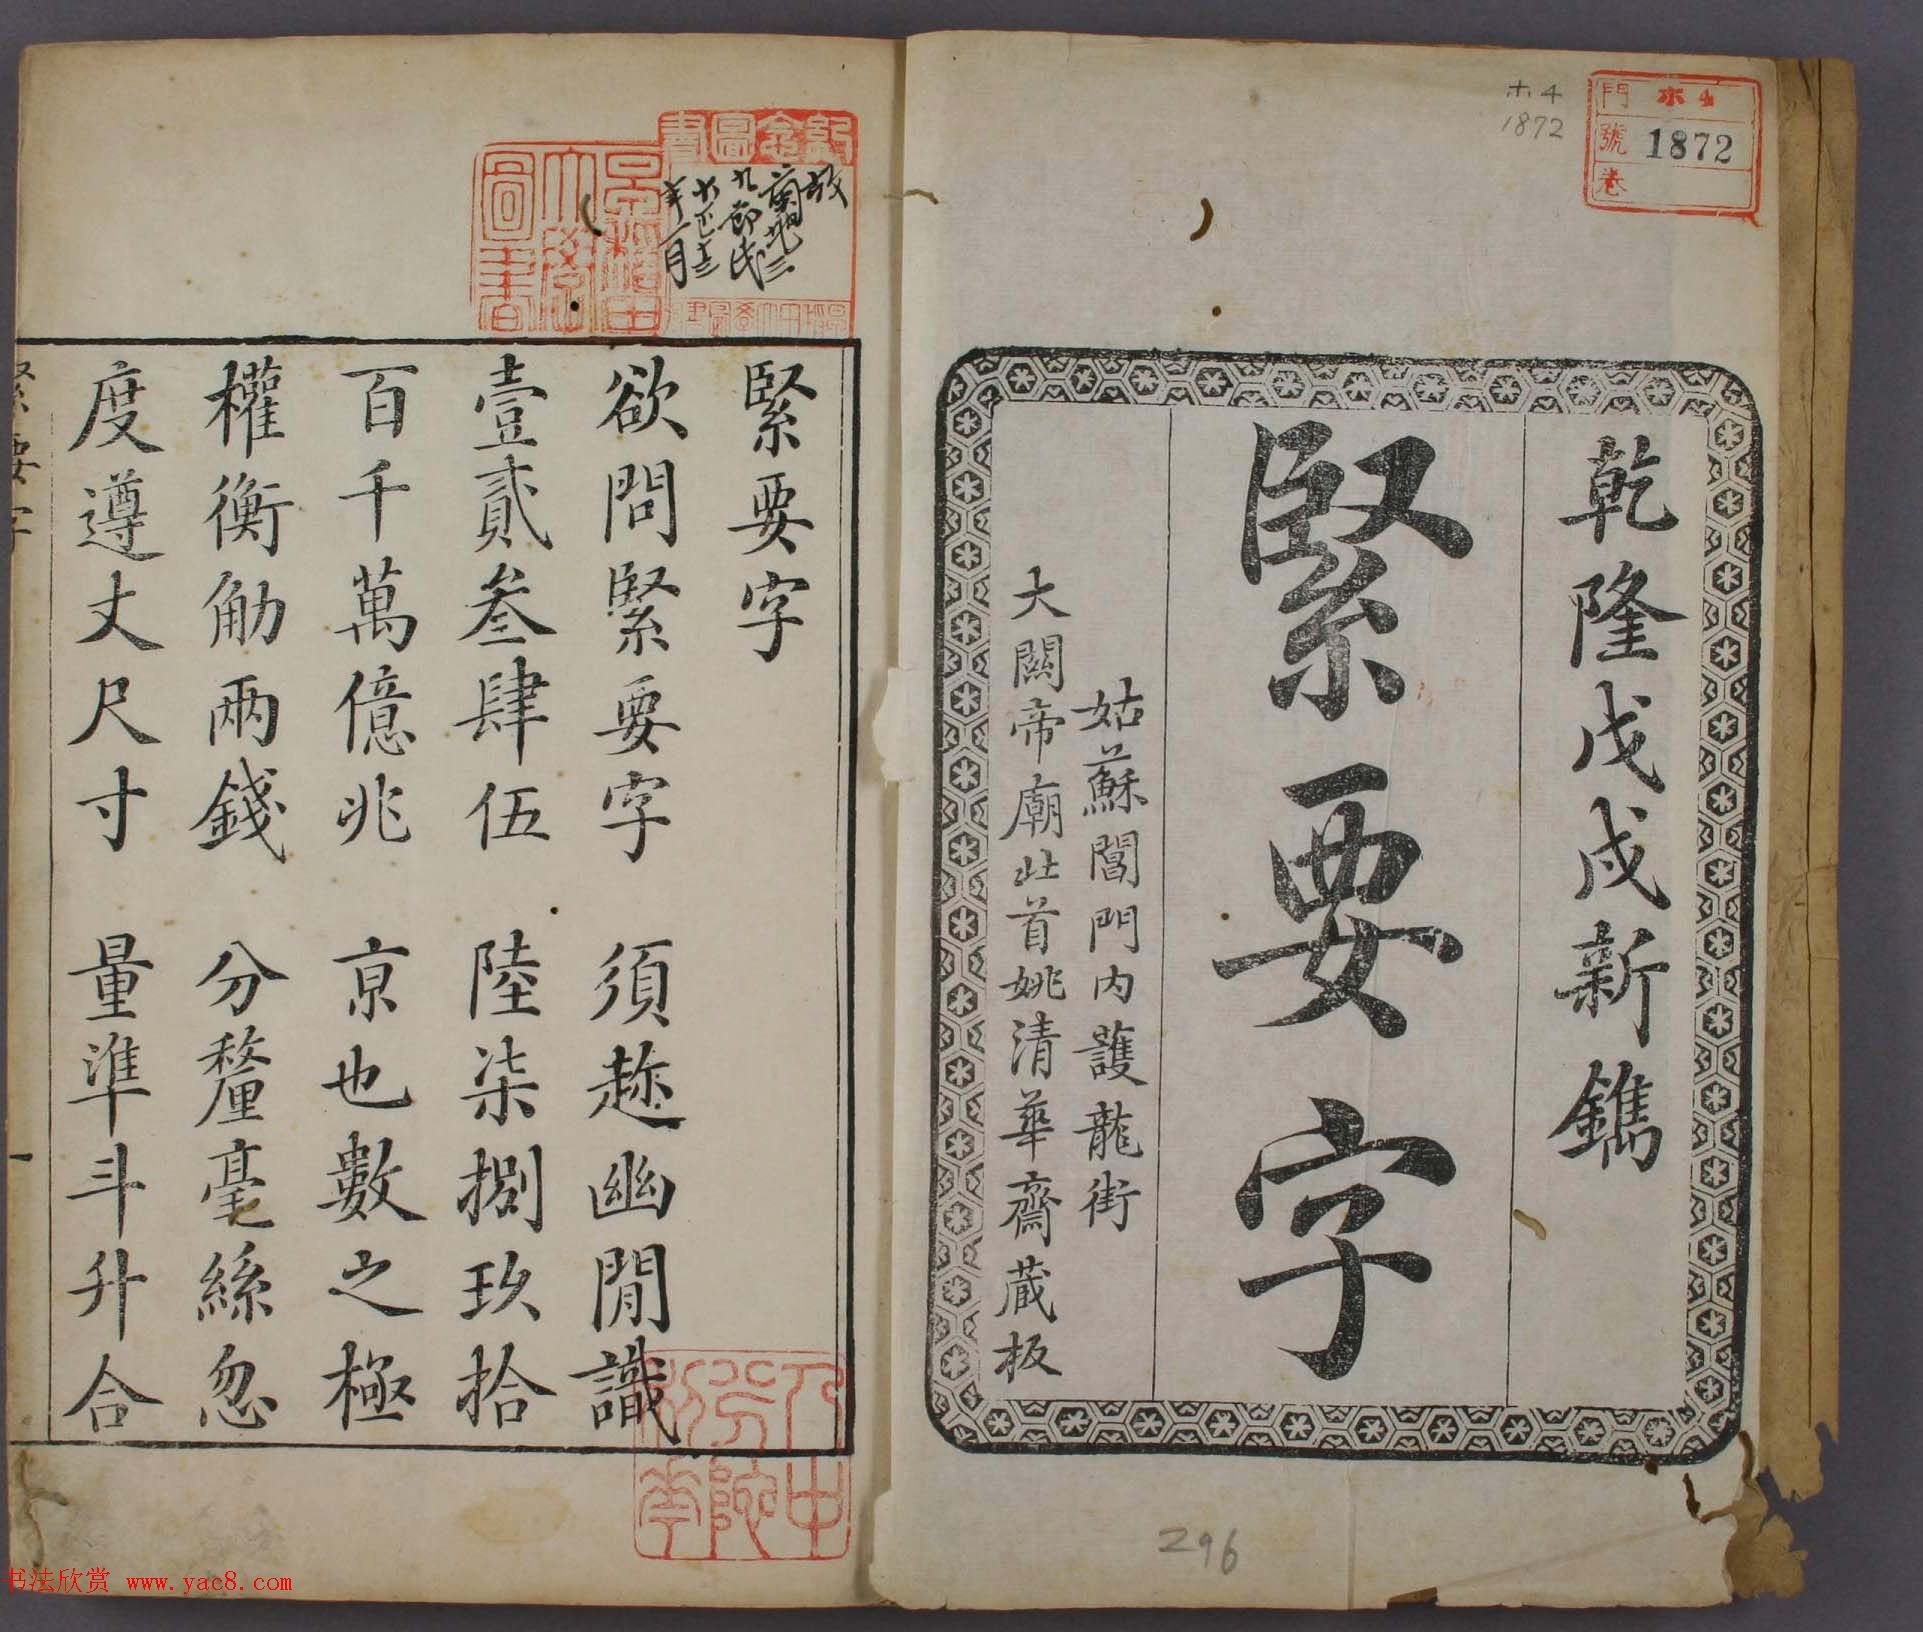 木4
1872
門 ホ4
號 1872
卷
乾隆戊戌新鐫
緊要字
姑蘇閶門内護龍街
大關帝廟北首姚清華齋蔵板
296
記念圖書
故
九郎氏
大正十三
年一月
早稲田
大學
圖書
緊要字
欲問緊要字 須趂幽閒識
壹貳叁肆伍 陸柒捌玖拾
百千萬億兆 京也數之極
權衡觔兩錢 分釐毫絲忽
度遵丈尺寸 量準斗升合
緊要字
一
书法欣赏 www.yac8.com